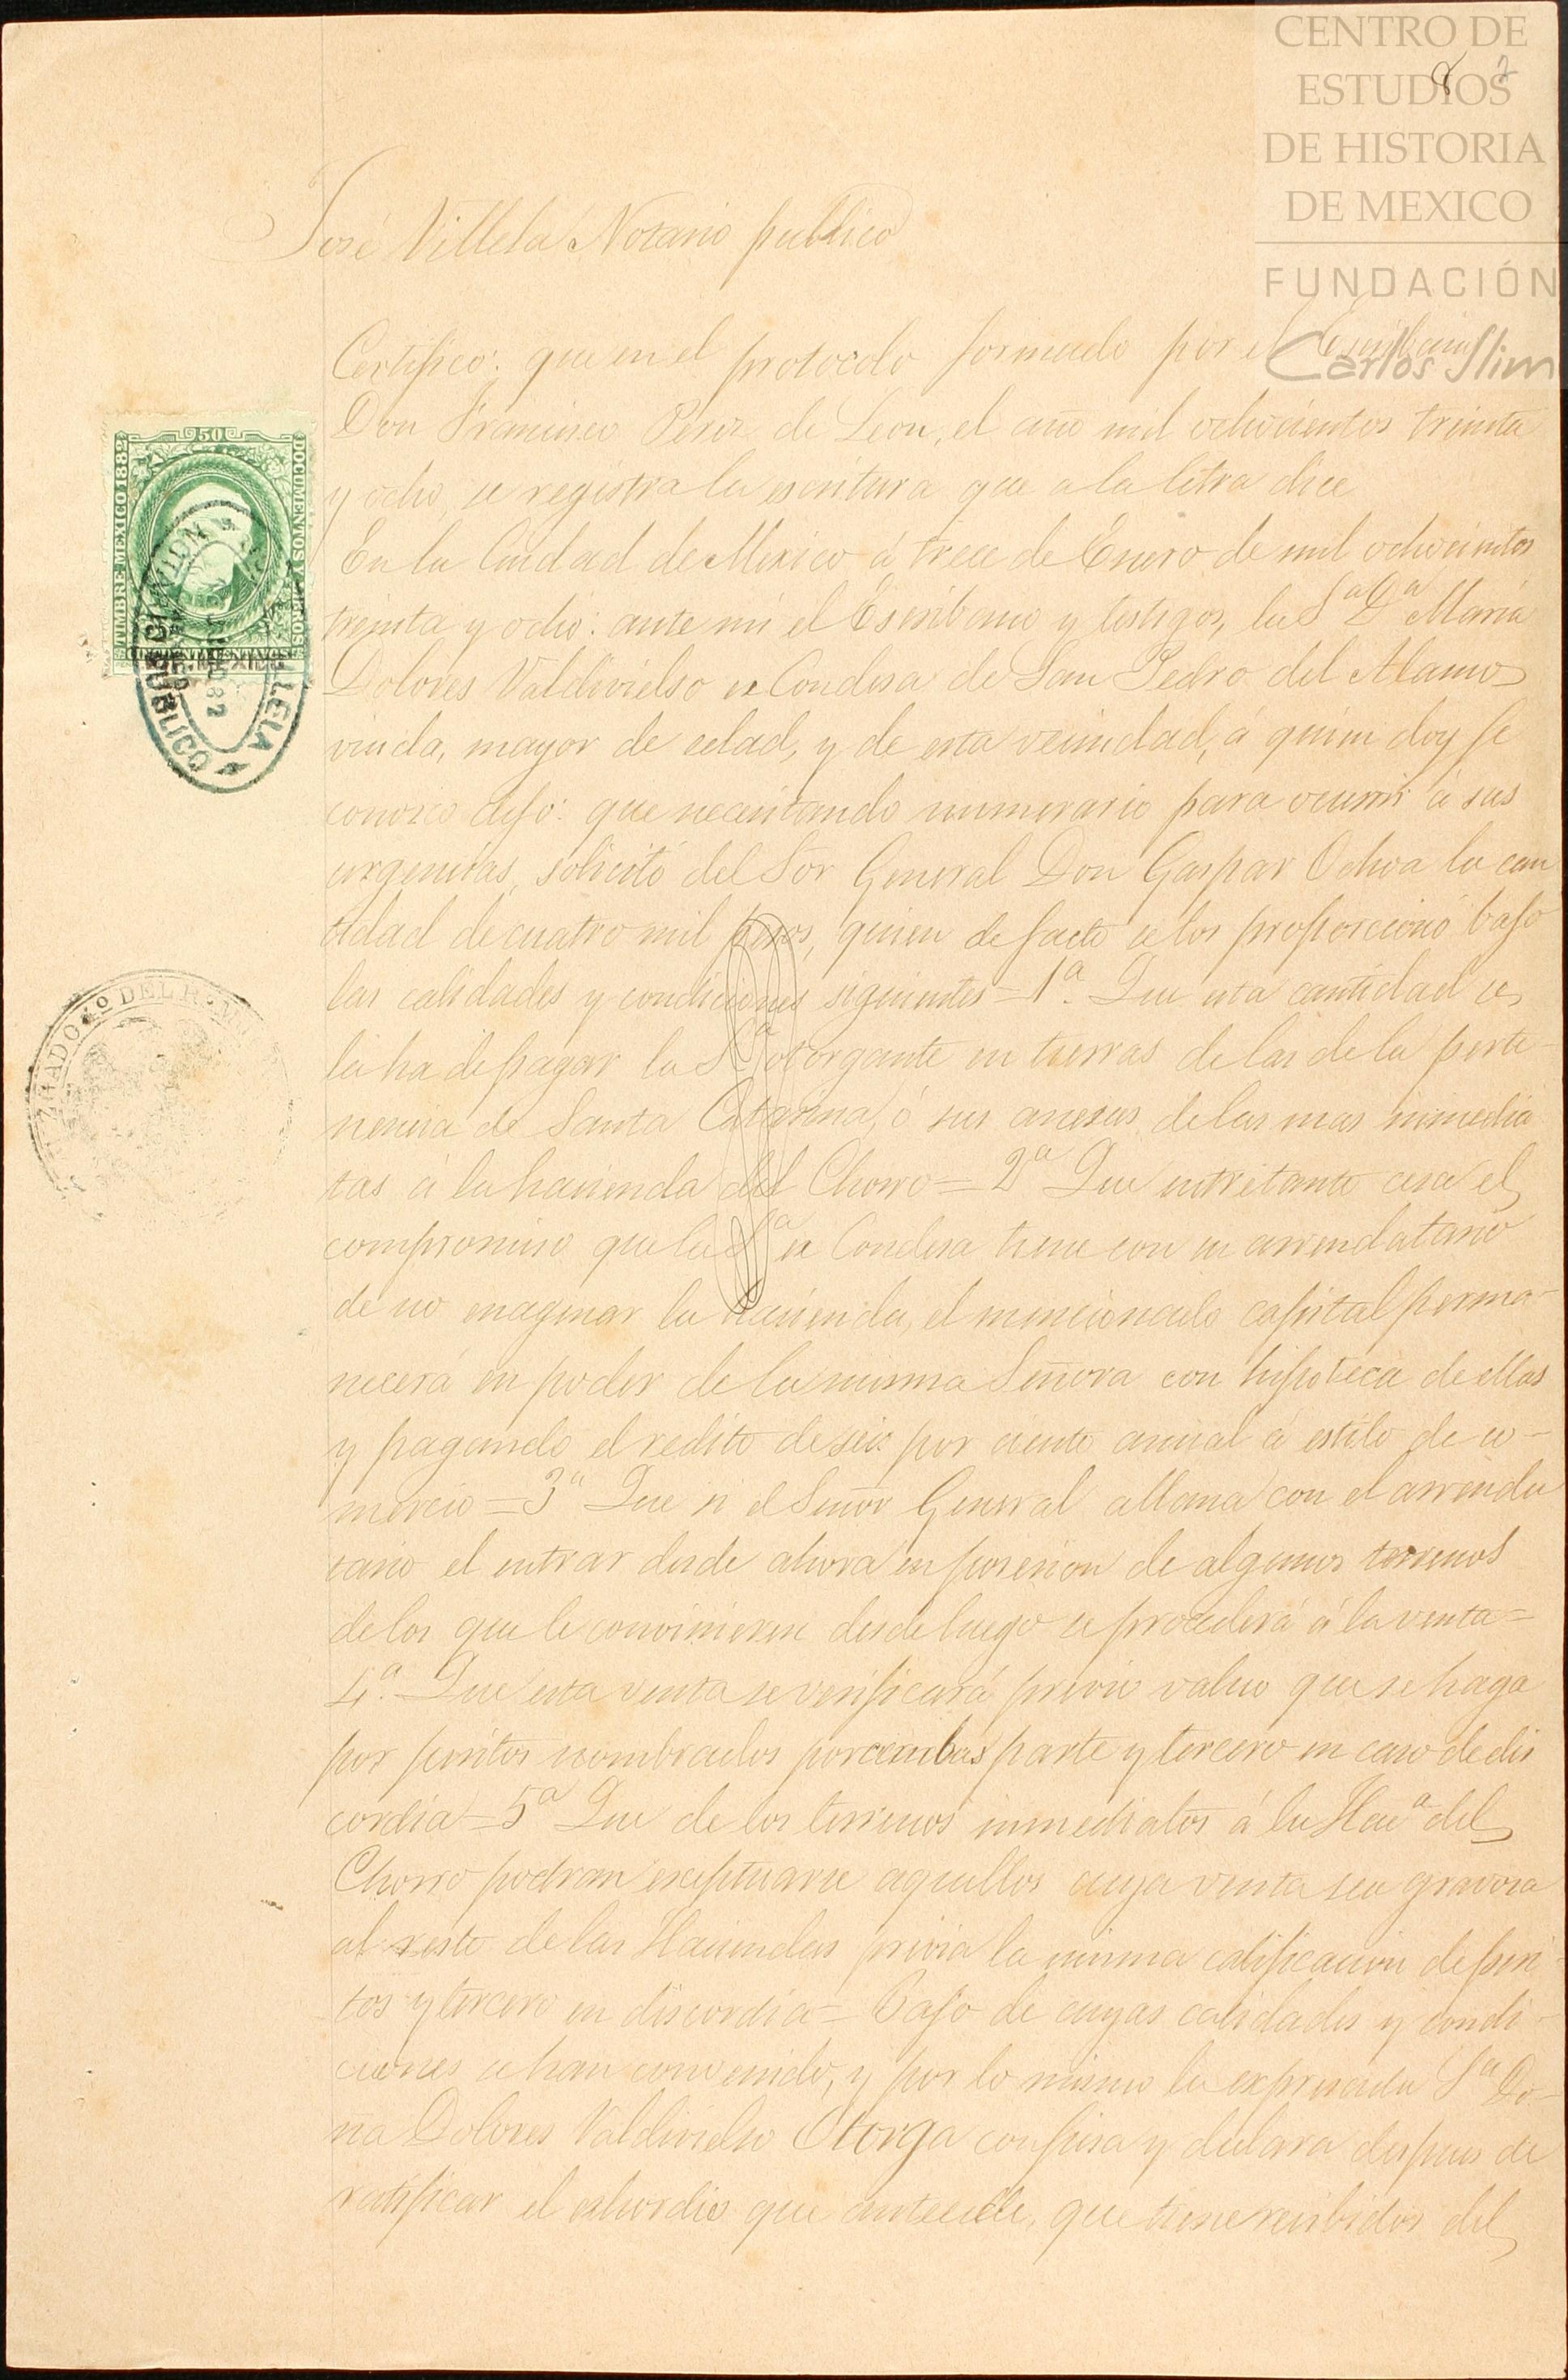 CENTRO DE
ESTUDIOS
DE HISTORIA
DE MEXICO
FUNDACIÓN
Carlos Slim
8
José Villela Notario publico
Certifico: que en el protocolo formado por el Escribano
Don Francisco Perez de Leon, el año mil ochocientos treinta
y ocho, se registra la escritura que a la letra dice
En la Ciudad de Mexico á trece de Enero de mil ochocientos
treinta y ocho: ante mi el Escribano y testigos, la Sᵃ Dᵃ Maria
Dolores Valdivielso ex Condesa de San Pedro del Alamo
viuda, mayor de edad, y de esta vecindad, á quien doy fe
conozco dijo: que necesitando numerario para ocurrir á sus
urgencias, solicitó del Sor General Don Gaspar Ochoa la can
tidad de cuatro mil pesos, quien de facto se los proporcionó bajo
las calidades y condiciones siguientes = 1ª. Que esta cantidad se
la ha de pagar la Sᵃ otorgante en tierras de las de la perte-
nencia de Santa Catarina, ó sus anexas de las mas inmedia
tas á la hacienda del Chorro = 2ª Que entretanto cesa el
compromiso que la Sᵃ ex Condesa tiene con su arrendatario
de no enagenar la hacienda, el mencionado capital perma-
necerá en poder de la misma Señora con hipoteca de ellas
y pagando el redito de seis por ciento anual á estilo de co-
mercio = 3ª Que si el Señor General allana con el arrenda
tario el entrar desde ahora en posesion de algunos terrenos
de los que le convinieren desde luego se procederá á la venta =
4ª. Que esta venta se verificará previo valuo que se haga
por peritos nombrados por ambas parte y tercero en caso de dis
cordia = 5ª Que de los terrenos inmediatos á la Hacᵃ del
Chorro podran exceptuarse aquellos cuya venta sea gravosa
al resto de las Haciendas previa la misma calificacion de peri
tos y tercero en discordia = Bajo de cuyas calidades y condi-
ciones se han convenido, y por lo mismo la expresada Sᵃ Do-
ña Dolores Valdivielso Otorga confiesa y declara despues de
ratificar el exhordio que antecede, que tiene recibidos del
TIMBRE MEXICO 1882
50
DOCUMENTOS Y LIBROS
CINCUENTA CENTAVOS
PUBLICO
JUZGADO 4º DEL R